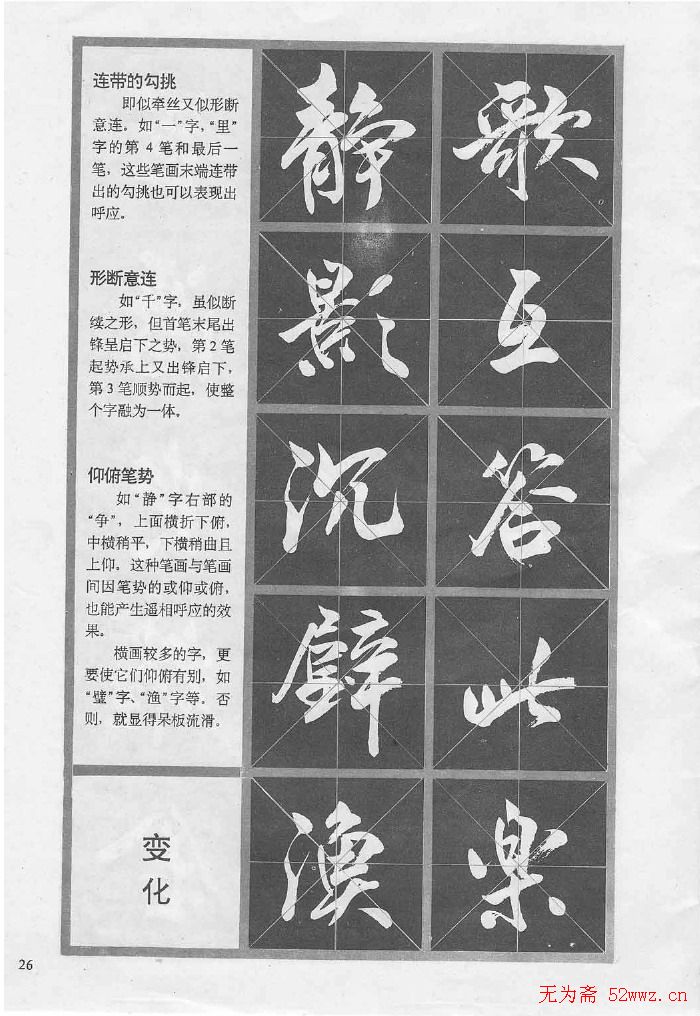 连带的勾挑
即似牵丝又似形断
意连。如“一”字，“里”
字的第4笔和最后一
笔，这些笔画末端连带
出的勾挑也可以表现出
呼应。
形断意连
如“千”字，虽似断
续之形，但首笔末尾出
锋呈启下之势，第2笔
起势承上又出锋启下，
第3笔顺势而起，使整
个字融为一体。
仰俯笔势
如“静”字右部的
“争”，上面横折下俯，
中横稍平，下横稍曲且
上仰。这种笔画与笔画
间因笔势的或仰或俯，
也能产生遥相呼应的效
果。
横画较多的字，更
要使它们仰俯有别，如
“璧”字、“渔”字等。否
则，就显得呆板流滑。
变
化
静
影
沉
璧
渔
歌
互
答
此
乐
26
无为斋 52wwz.cn